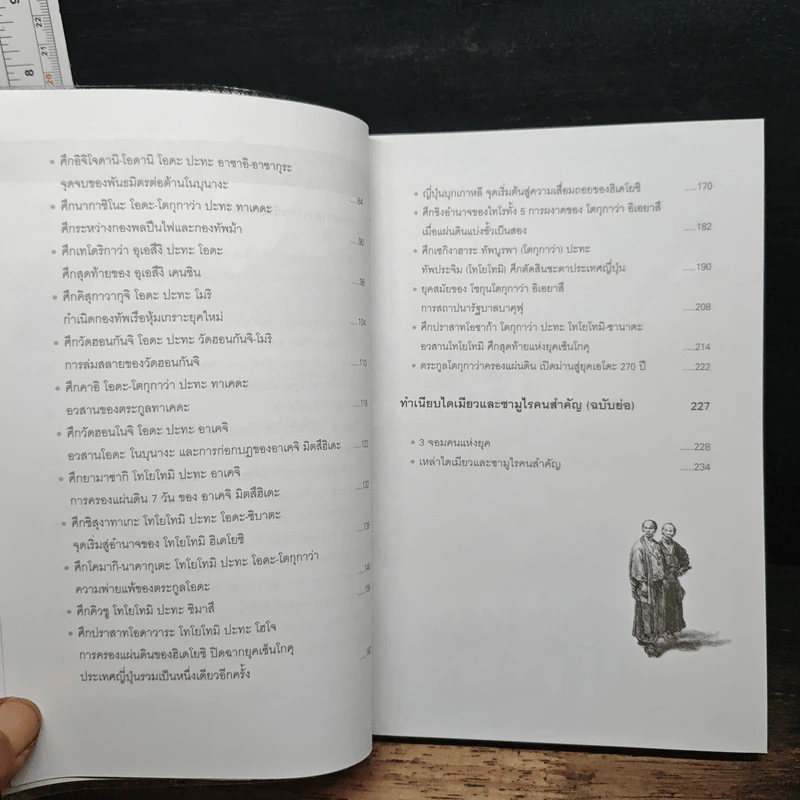 • ศึกอิจิโจดานิ-โอดานิ โอดะ ปะทะ อาซาอิ-อาซากุระ
จุดจบของพันธมิตรต่อต้านโนบุนางะ .....84
• ศึกนากาชิโนะ โอดะ-โตกุกาว่า ปะทะ ทาเคดะ
ศึกระหว่างกองพลปืนไฟและกองทัพม้า .....90
• ศึกเทโดริกาว่า อุเอสึงิ ปะทะ โอดะ
ศึกสุดท้ายของ อุเอสึงิ เคนชิน .....98
• ศึกคิสุกาวากุจิ โอดะ ปะทะ โมริ
กำเนิดกองทัพเรือหุ้มเกราะยุคใหม่ .....104
• ศึกวัดฮอนกันจิ โอดะ ปะทะ วัดฮอนกันจิ-โมริ
การล่มสลายของวัดฮอนกันจิ .....110
• ศึกคาอิ โอดะ-โตกุกาว่า ปะทะ ทาเคดะ
อวสานของตระกูลทาเคดะ .....116
• ศึกวัดฮอนโนจิ โอดะ ปะทะ อาเคจิ
อวสานโอดะ โนบุนางะ และการก่อกบฏของอาเคจิ มิตสึฮิเดะ .....122
• ศึกยามาซากิ โทโยโทมิ ปะทะ อาเคจิ
การครองแผ่นดิน 7 วัน ของ อาเคจิ มิตสึฮิเดะ .....132
• ศึกชิสุงาทาเกะ โทโยโทมิ ปะทะ โอดะ-ชิบาตะ
จุดเริ่มสู่อำนาจของ โทโยโทมิ ฮิเดโยชิ
• ศึกโคมากิ-นาคากุเตะ โทโยโทมิ ปะทะ โอดะ-โตกุกาว่า
ความพ่ายแพ้ของตระกูลโอดะ
• ศึกคิวชู โทโยโทมิ ปะทะ ชิมาสึ
• ศึกปราสาทโอดาวาระ โทโยโทมิ ปะทะ โฮโจ
การครองแผ่นดินของฮิเดโยชิ ปิดฉากยุคเซ็นโกคุ
ประเทศญี่ปุ่นรวมเป็นหนึ่งเดียวอีกครั้ง
• ญี่ปุ่นบุกเกาหลี จุดเริ่มต้นสู่ความเสื่อมถอยของฮิเดโยชิ .....170
• ศึกชิงอำนาจของไทโรทั้ง 5 การผงาดของ โตกุกาว่า อิเอยาสึ
เมื่อแผ่นดินแบ่งขั้วเป็นสอง .....182
• ศึกเซกิงาฮาระ ทัพบูรพา (โตกุกาว่า) ปะทะ
ทัพประจิม (โทโยโทมิ) ศึกตัดสินชะตาประเทศญี่ปุ่น .....190
• ยุคสมัยของ โชกุนโตกุกาว่า อิเอยาสึ
การสถาปนารัฐบาลบาคุฟุ .....208
• ศึกปราสาทโอซาก้า โตกุกาว่า ปะทะ โทโยโทมิ-ซานาดะ
อวสานโทโยโทมิ ศึกสุดท้ายแห่งยุคเซ็นโกคุ .....214
• ตระกูลโตกุกาว่าครองแผ่นดิน เปิดม่านสู่ยุคเอโดะ 270 ปี .....222
ทำเนียบไดเมียวและซามูไรคนสำคัญ (ฉบับย่อ) 227
• 3 จอมคนแห่งยุค .....228
• เหล่าไดเมียวและซามูไรคนสำคัญ .....234